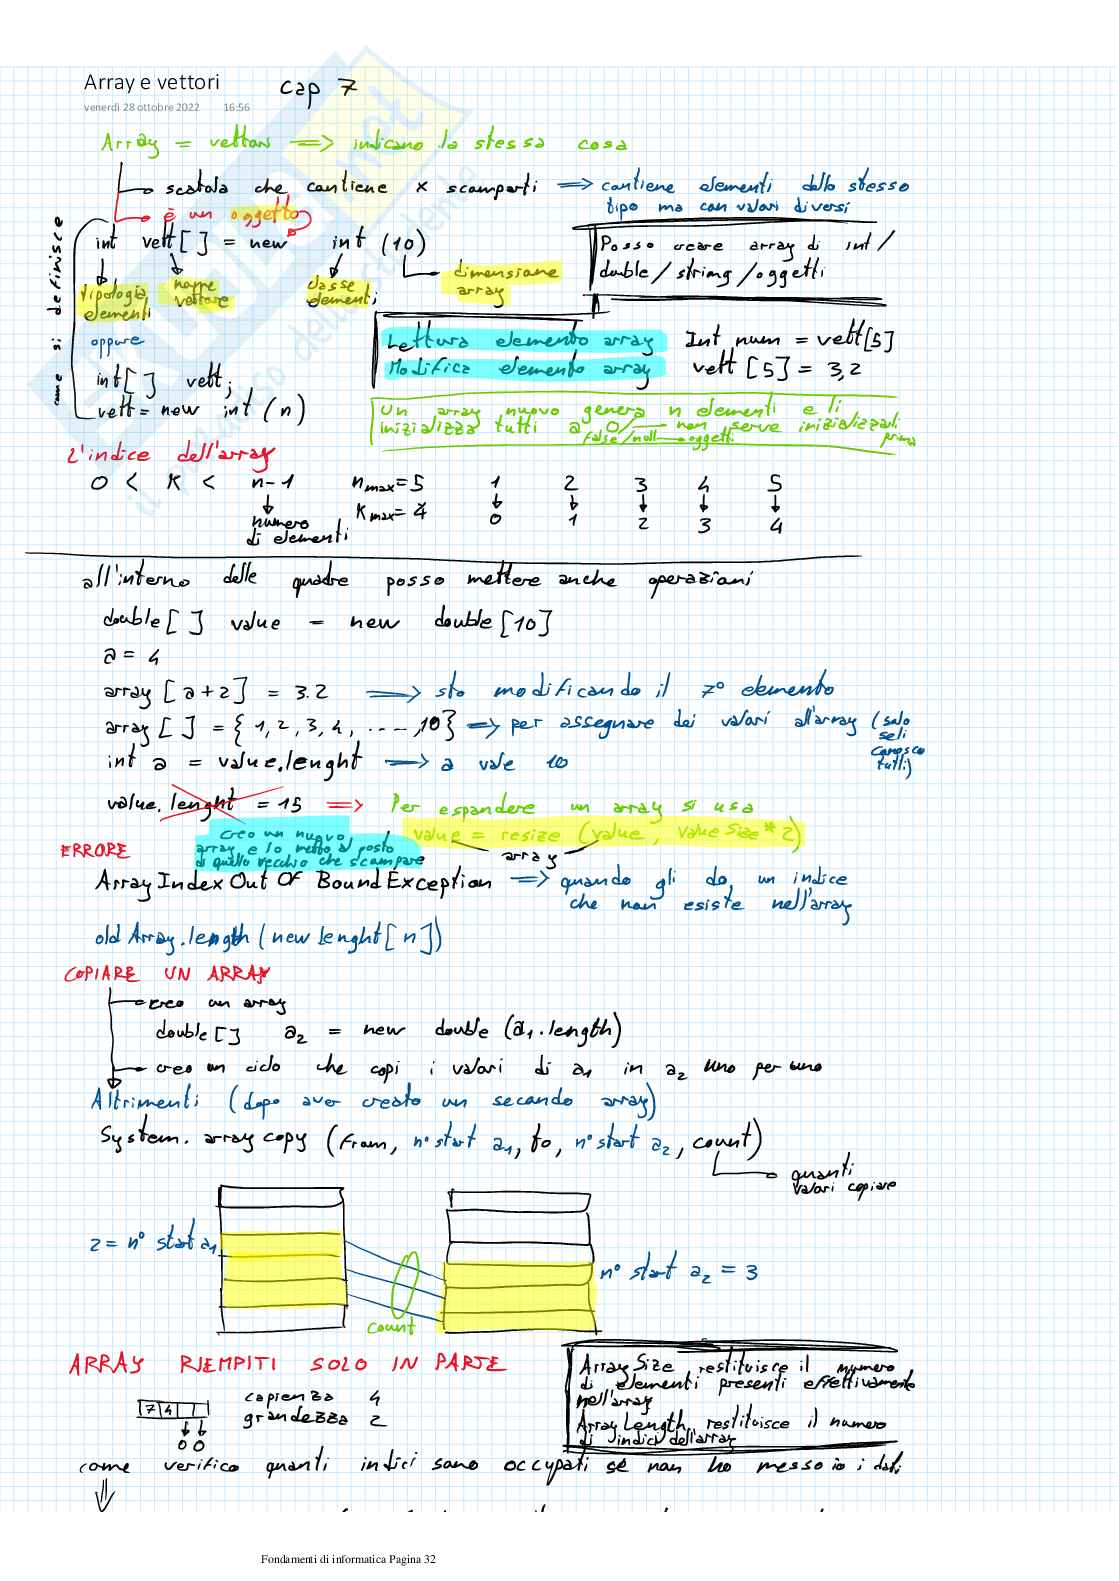 Array e vettori
cap 7
venerdì 28 ottobre 2022 16:56
Array = vettori => indicano la stessa cosa
scatola che contiene x scomparti => contiene elementi dello stesso
tipo ma con valori diversi
è un oggetto
come si definisce
int vett[] = new int (10)
tipologia elementi
nome vettore
classe elementi
dimensione array
Posso creare array di int/
double/string/oggetti
oppure
int[] vett;
vett = new int (n)
Lettura elemento array Int num = vett[5]
Modifica elemento array vett [5] = 3,2
Un array nuovo genera n elementi e li
inizializza tutti a 0/ non serve inizializzarli
false/null → oggetti prima
L'indice dell'array
0 < K < n-1
numero
di elementi
nmax=5 1 2 3 4 5
Kmax=4 0 1 2 3 4
all'interno delle quadre posso mettere anche operazioni
double[] value = new double [10]
a = 4
array [a+2] = 3.2 => sto modificando il 7° elemento
array [] = {1,2,3,4, ---,10} => per assegnare dei valori all'array (solo
se li
conosco
tutti)
int a = value.lenght => a vale 10
value.lenght = 15 => Per espandere un array si usa
value = resize (value, valueSize*2)
array
creo un nuovo
array e lo metto al posto
di quello vecchio che scompare
ERRORE
Array Index Out Of Bound Exception => quando gli do un indice
che non esiste nell'array
old Array.length (new lenght[n])
COPIARE UN ARRAY
creo un array
double[] a2 = new double (a1.length)
creo un ciclo che copi i valori di a1 in a2 uno per uno
Altrimenti (dopo aver creato un secondo array)
System.array copy (from, n° start a1, to, n° start a2, count)
quanti
valori copiare
2 = n° start a1
n° start a2 = 3
count
ARRAY RIEMPITI SOLO IN PARTE
7 4
0 0
capienza 4
grandezza 2
Array Size restituisce il numero
di elementi presenti effettivamente
nell'array
Array Length restituisce il numero
di indici dell'array
come verifico quanti indici sono occupati se non ho messo io i dati
Fondamenti di informatica Pagina 32